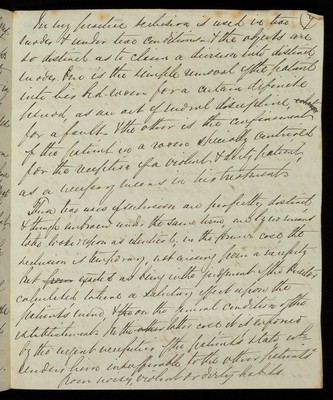 In my practice seclusion is used in two
modes & under two conditions & the objects are
so distinct as to claim a division into distinct
modes. One is the simple removal of the patient
into his bed room for a certain definite
period, as an act of moral discipline,
for a fault. & the other is the confinement
of the patient in a room specially contrived
for the reception of a violent & dirty patient,
as a necessary means in his treatment.
These two uses of seclusion are perfectly distinct
& though embraced under the same term, are by no means
to be looked upon as identical, in the former case the
seclusion is temporary, not arising from a necessity
but from as being with the judgment of the Doctor
calculated to have a salutary effect upon the
patients mind, & on the general condition of the
establishment. In the other case it is imposed
by the urgent necessities of the patient's state wh.
renders him insufferable to the other patients
from noisy, violent or dirty habits